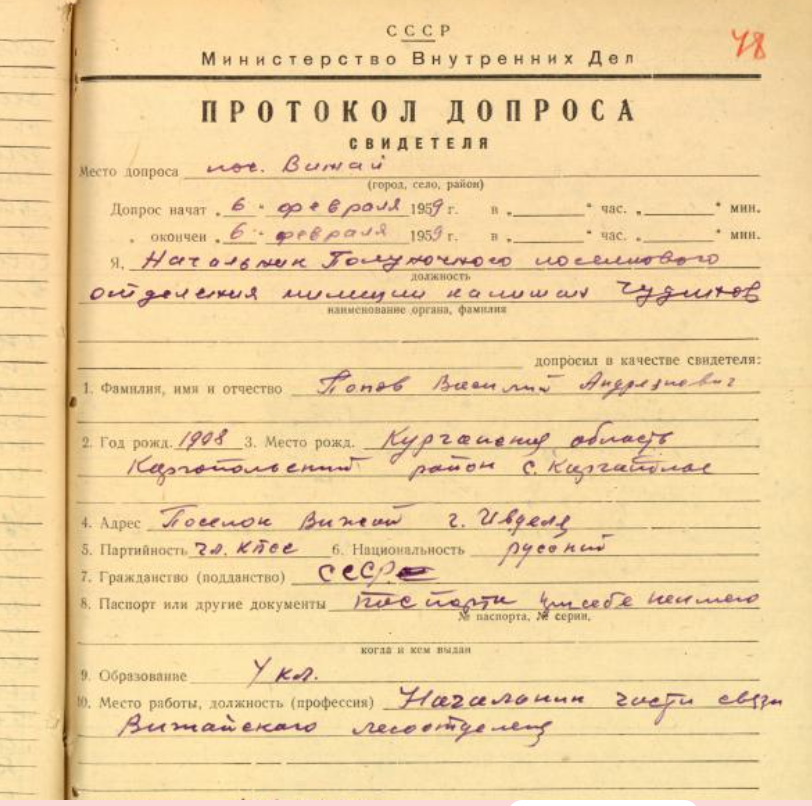 48
СССР
Министерство Внутренних Дел
ПРОТОКОЛ ДОПРОСА
СВИДЕТЕЛЯ
Место допроса пос. Вижай
(город, село, район)
Допрос начат „ 6 " февраля 1959 г. в „ " час. „ " мин.
„ окончен „ 6 " февраля 1959 г. в „ " час. „ " мин.
Я, Начальник Полуночного поселкового
должность
отделения милиции капитан Чудинов
наименование органа, фамилия
допросил в качестве свидетеля:
1. Фамилия, имя и отчество Попов Василий Андреянович
2. Год рожд. 1908 3. Место рожд. Курганская область
Каргопольский район с. Каргаполье
4. Адрес Поселок Вижай г. Ивделя
5. Партийность чл. КПСС 6. Национальность русский
7. Гражданство (подданство) СССР
8. Паспорт или другие документы паспорта при себе неимею
№ паспорта, № серии,
когда и кем выдан
9. Образование 4 кл.
10. Место работы, должность (профессия) Начальник части связи
Вижайского лесоотделен